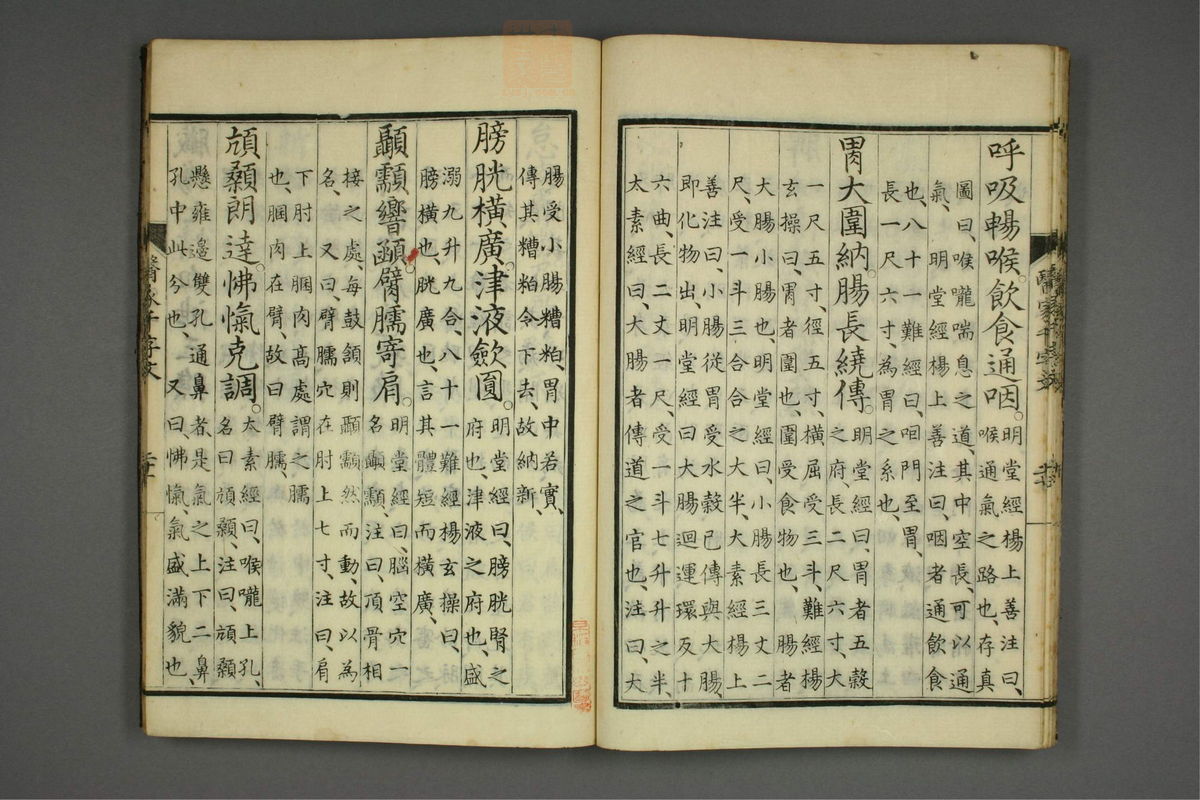 呼吸暢喉。飲食通咽。明堂經楊上善注曰、
喉通氣之路也、存真
圖曰、喉嚨喘息之道、其中空長、可以通
氣、明堂經楊上善注曰、咽者通飲食
也、八十一難經曰、咽門至胃、
長一尺六寸、為胃之系也、
胃大圍納。腸長繞傳。明堂經曰、胃者五穀
之府、長二尺六寸、大
一尺五寸、徑五寸、橫屈受三斗、難經楊
玄操曰、胃者圍也、圍受食物也、腸者
大腸小腸也、明堂經曰、小腸長三丈二
尺、受一斗三合合之大半、太素經楊上
善注曰、小腸從胃受水穀已傳與大腸、
即化物出、明堂經曰大腸迴運環反十
六曲、長二丈一尺、受一斗七升升之半、
太素經曰、大腸者傳道之官也、注曰、大
腸受小腸糟粕、胃中若實、
傳其糟粕令下去、故納新、
膀胱橫廣。津液歛圓。明堂經曰、膀胱腎之
府也、津液之府也、盛
溺九升九合、八十一難經楊玄操曰、
膀橫也、胱廣也、言其體短而橫廣、
顳顬響顄。臂臑寄肩。明堂經曰、腦空穴一
名顳顬、注曰、頂骨相
接之處、每鼓頷則顳顬然而動、故以為
名、又曰、臂臑穴在肘上七寸、注曰、肩
下肘上䐃肉高處謂之臑
也、䐃肉在臂、故曰臂臑、
頏顙朗達。怫愾克調。太素經曰、喉嚨上孔、
名曰頏顙、注曰、頏顙
懸雍邊雙孔、通鼻者、是氣之上下二鼻
孔中此兮也、又曰、怫愾、氣盛滿貌也
醫家千字文
二十